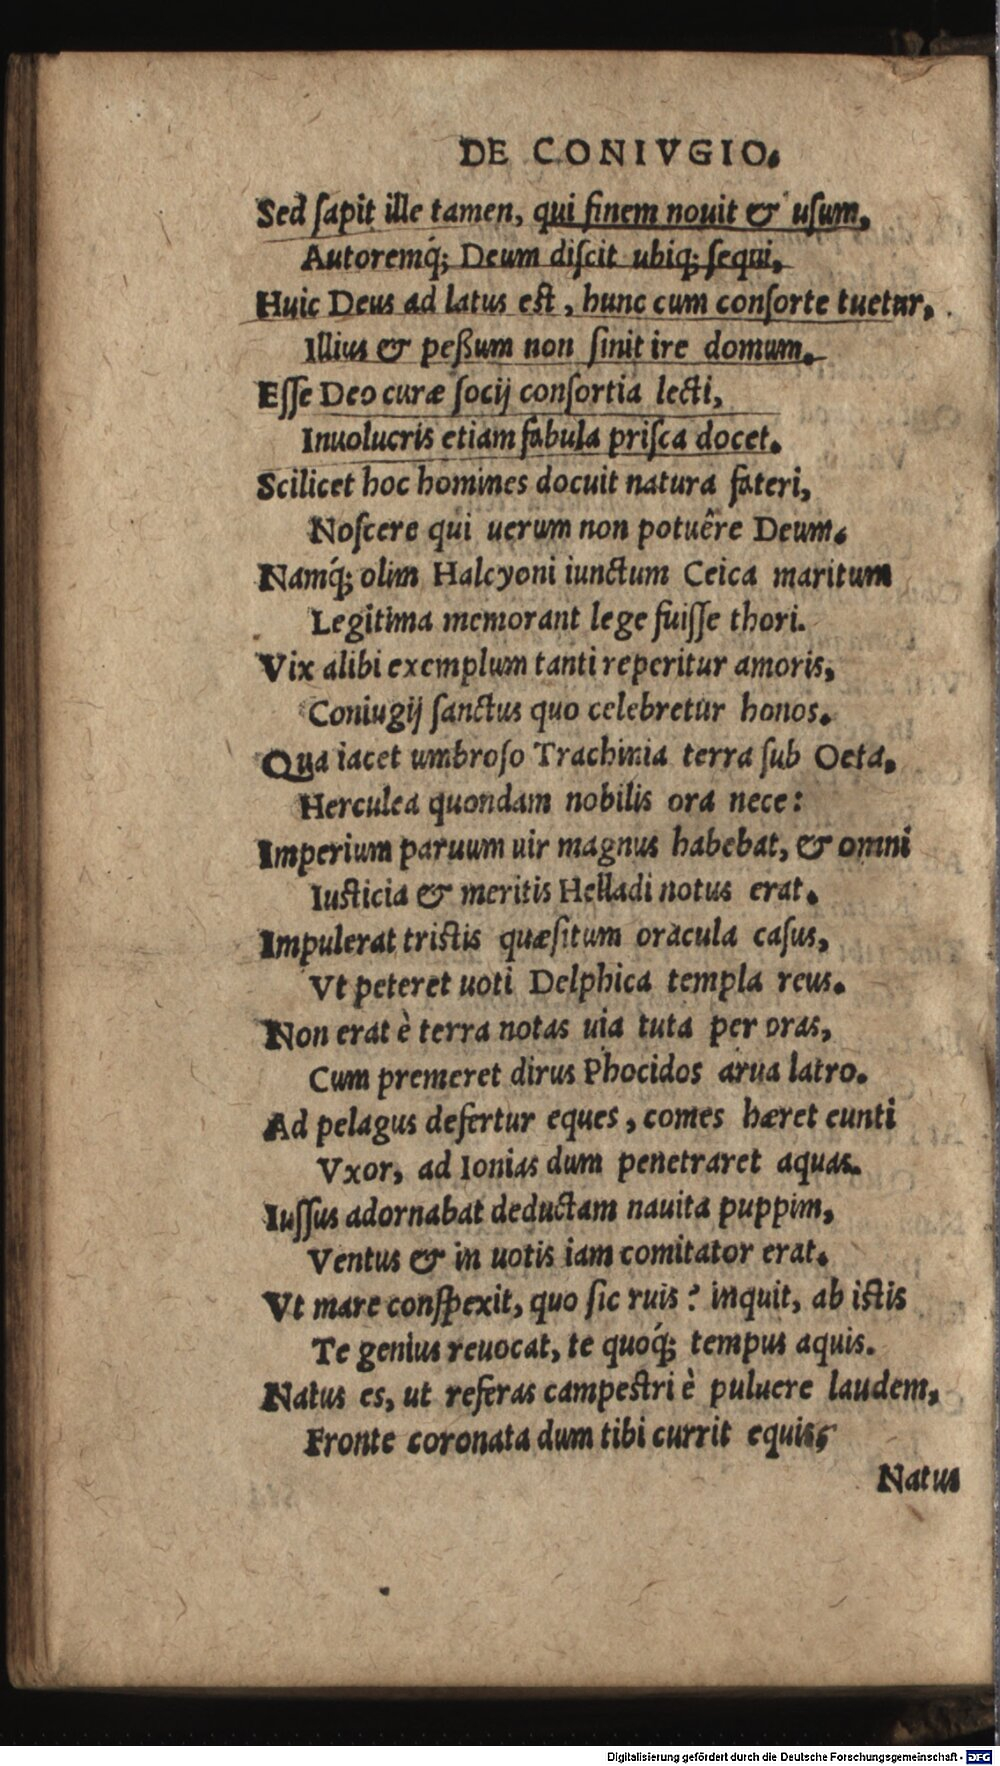 DE CONIVGIO.
Sed ſapit ille tamen, qui finem nouit & uſum,
Autoremq́; Deum diſcit ubiq; ſequi,
Huic Deus ad latus eſt, hunc cum conſorte tuetur,
Illius & peßum non ſinit ire domum.
Eſſe Deo curæ ſocij conſortia lecti,
Inuolucris etiam fabula priſca docet.
Scilicet hoc homines docuit natura fateri,
Noſcere qui uerum non potuêre Deum.
Namq́; olim Halcyoni iunctum Ceica maritum
Legitima memorant lege fuiſſe thori.
Vix alibi exemplum tanti reperitur amoris,
Coniugij ſanctus quo celebretur honos.
Qua iacet umbroſo Trachinia terra ſub Oeta,
Herculea quondam nobilis ora nece:
Imperium paruum uir magnus habebat, & omni
Iusticia & meritis Helladi notus erat.
Impulerat tristis quæſitum oracula caſus,
Vt peteret uoti Delphica templa reus.
Non erat è terra notas uia tuta per oras,
Cum premeret dirus Phocidos arua latro.
Ad pelagus defertur eques, comes hæret eunti
Vxor, ad Ionias dum penetraret aquas.
Iuſſus adornabat deductam nauita puppim,
Ventus & in uotis iam comitator erat.
Vt mare conſpexit, quo ſic ruis? inquit, ab istis
Te genius reuocat, te quoq́; tempus aquis.
Natus es, ut referas campestri è puluere laudem,
Fronte coronata dum tibi currit equis,
Natus
Digitalisierung gefördert durch die Deutsche Forschungsgemeinschaft - DFG